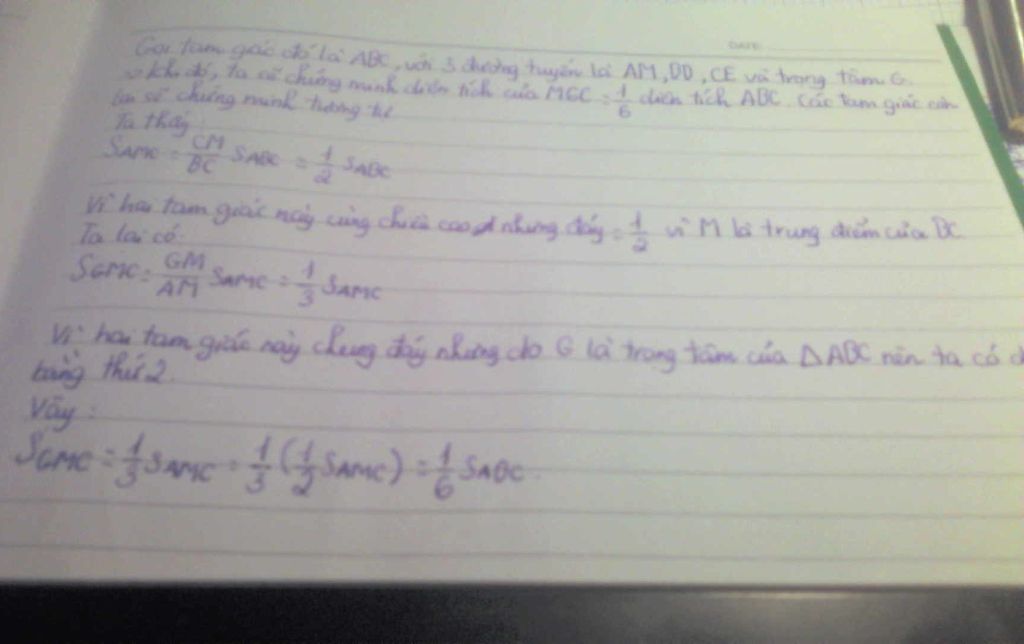 DATE
Gọi tam giác đó là ABC, với 3 đường tuyến là AM, BD, CE và trọng tâm G.
khi đó, ta sẽ chứng minh diện tích của MGC = 1/6 diện tích ABC. Các tam giác còn
lại sẽ chứng minh tương tự
Ta thấy
SAMC = CM/BC SABC = 1/2 SABC
Vì hai tam giác này cùng chiều cao nhưng đáy = 1/2 vì M là trung điểm của BC
Ta lại có:
SGMC = GM/AM SAMC = 1/3 SAMC
Vì hai tam giác này chung đáy nhưng do G là trọng tâm của ΔABC nên ta có
bằng thứ 2.
Vậy:
SGMC = 1/3 SAMC = 1/3 (1/2 SAMC) = 1/6 SABC.